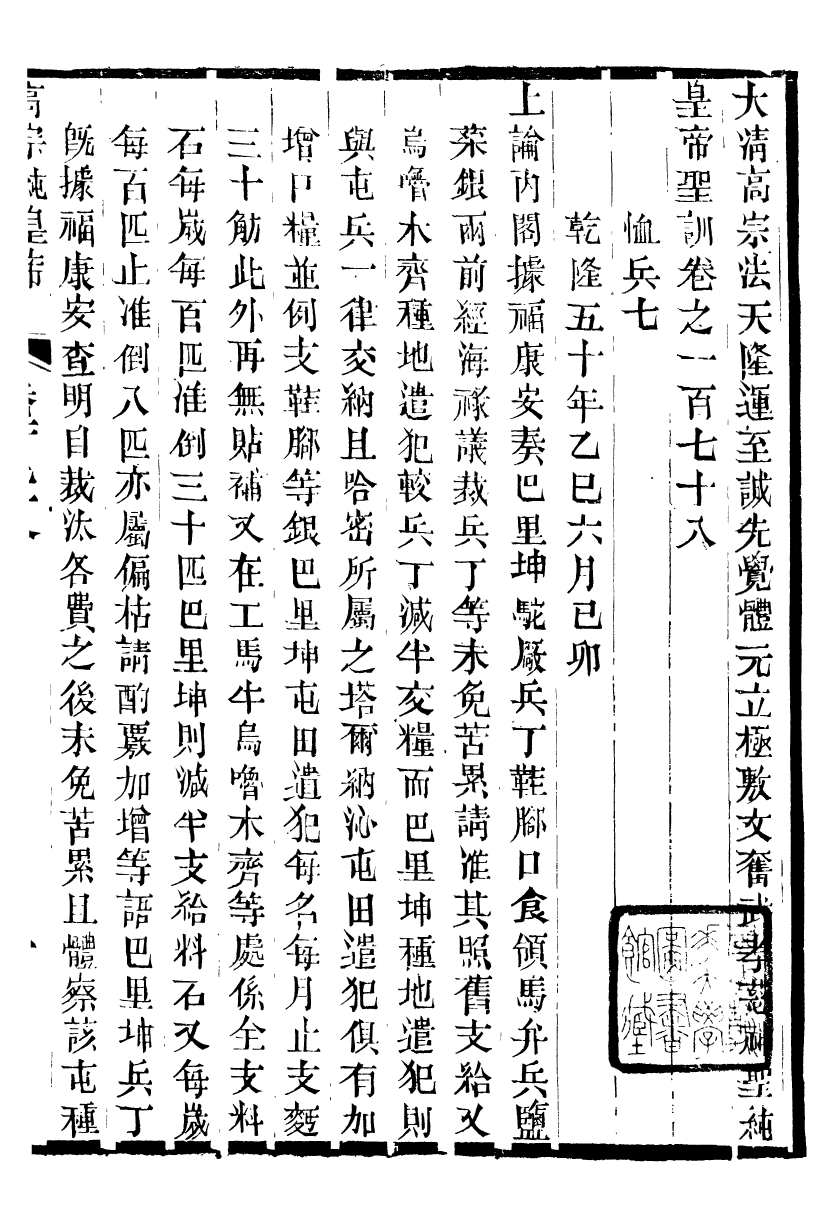 大淸高宗法天隆運至誠先覺體元立極敷文奮武孝慈神聖純
皇帝聖訓卷之一百七十八
恤兵七
乾隆五十年乙巳六月己卯
上諭內閣據福康安奏巴里坤駝厰兵丁鞋腳口食領馬弁兵鹽
菜銀兩前經海祿議裁兵丁等未免苦累請准其照舊支給又
烏嚕木齊種地遣犯較兵丁減半交糧而巴里坤種地遣犯則
與屯兵一律交納且哈密所屬之塔爾納沁屯田遣犯俱有加
增口糧並例支鞋腳等銀巴里坤屯田遣犯每名每月止支麪
三十觔此外再無貼補又在工馬牛烏嚕木齊等處係全支料
石每歲每百匹准倒三十匹巴里坤則減半支給料石又每歲
每百匹止准倒八匹亦屬偏枯請酌覈加增等語巴里坤兵丁
旣據福康安查明自裁汰各費之後未免苦累且體察該屯種
高宗純皇帝